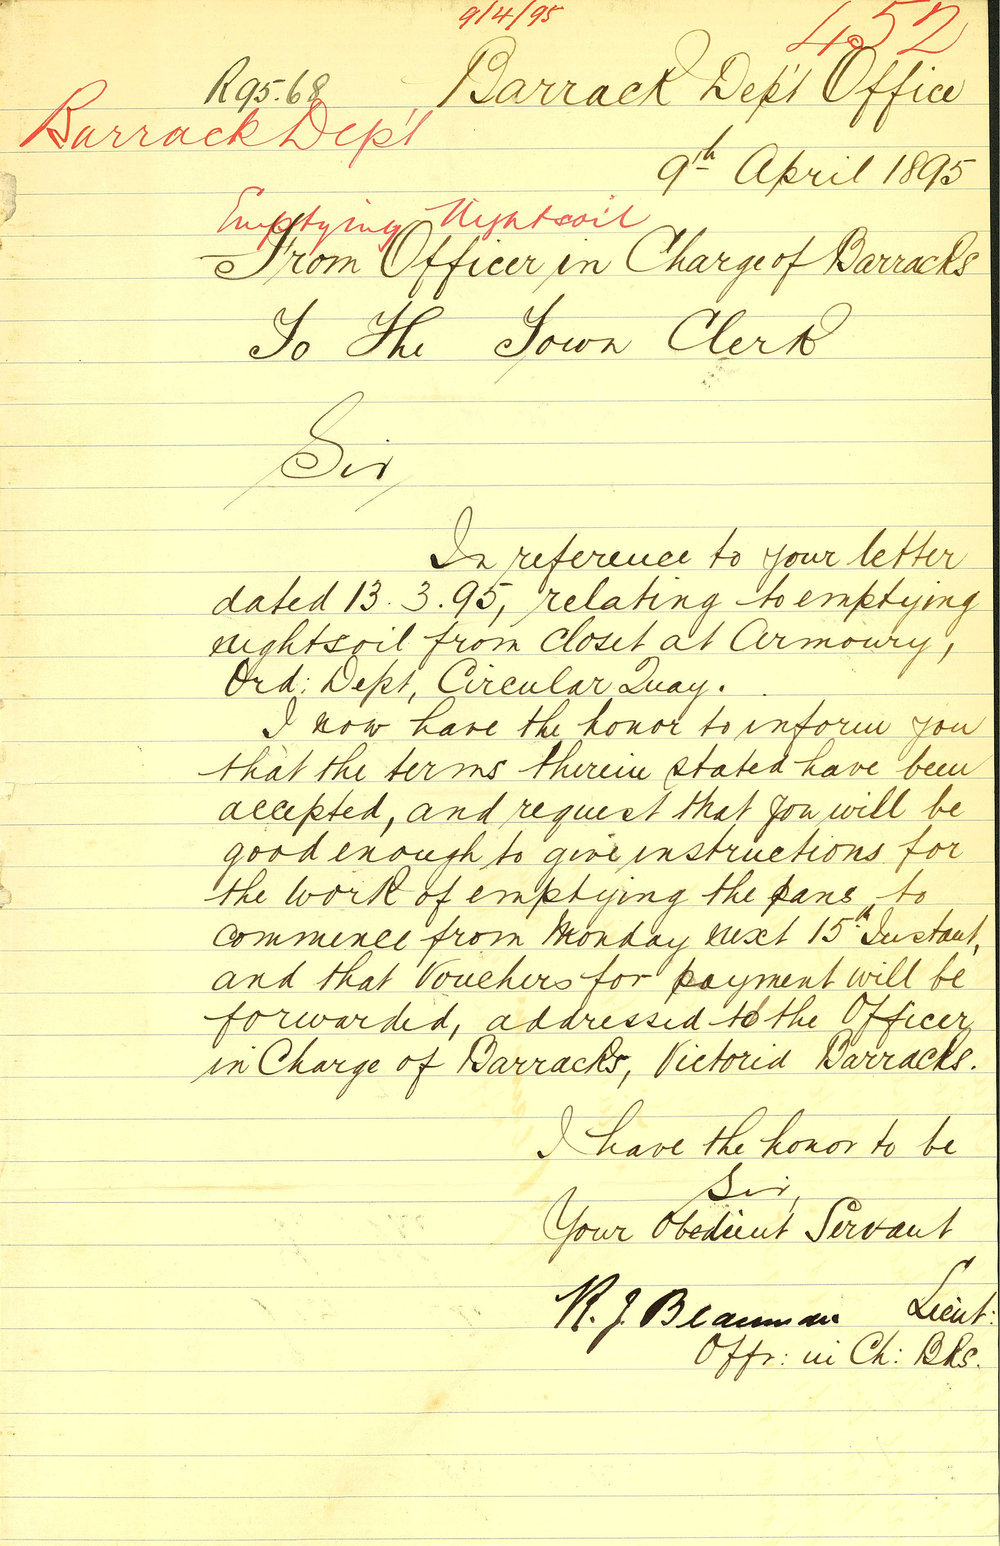 9/4/95
452
R95.68
Barrack Dep't Office
Barrack Dep't
9th April 1895
Emptying Nightsoil
From Officer in Charge of Barracks
To The Town Clerk
Sir,
In reference to your letter
dated 13.3.95, relating to emptying
nightsoil from closet at Armoury,
Ord: Dept, Circular Quay.
I now have the honor to inform you
that the terms therein stated have been
accepted, and request that you will be
good enough to give instructions for
the work of emptying the pans to
commence from Monday next 15th Instant,
and that Vouchers for payment will be
forwarded, addressed to the Officer
in Charge of Barracks, Victoria Barracks.
I have the honor to be
Sir,
Your Obedient Servant
R. J. Lieut:
Offr: in Ch: Bks.